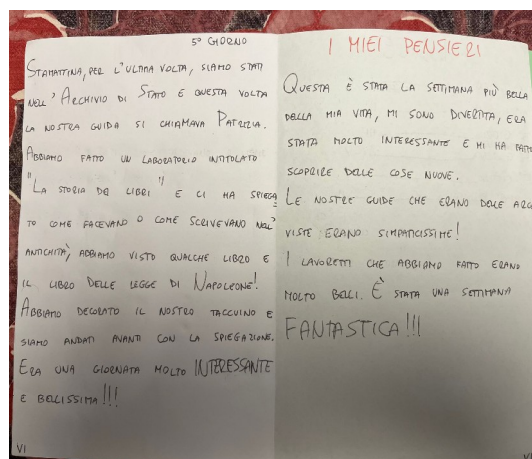 5° GIORNO
STAMATTINA, PER L'ULTIMA VOLTA, SIAMO STATI
NELL'ARCHIVIO DI STATO E QUESTA VOLTA
LA NOSTRA GUIDA SI CHIAMAVA PATRIZIA.
ABBIAMO FATTO UN LABORATORIO INTITOLATO
"LA STORIA DEI LIBRI" E CI HA SPIEGA
TO COME FACEVANO O COME SCRIVEVANO NELL'
ANTICHITÀ, ABBIAMO VISTO QUALCHE LIBRO E
IL LIBRO DELLE LEGGE DI NAPOLEONE!
ABBIAMO DECORATO IL NOSTRO TACCUINO E
SIAMO ANDATI AVANTI CON LA SPIEGAZIONE.
ERA UNA GIORNATA MOLTO INTERESSANTE
E BELLISSIMA!!!
VI
I MIEI PENSIERI
QUESTA È STATA LA SETTIMANA PIÙ BELLA
DELLA MIA VITA, MI SONO DIVERTITA, ERA
STATA MOLTO INTERESSANTE E MI HA FATTO
SCOPRIRE DELLE COSE NUOVE.
LE NOSTRE GUIDE CHE ERANO DELLE ARCHI
VISTE ERANO SIMPATICISSIME!
I LAVORETTI CHE ABBIAMO FATTO ERANO
MOLTO BELLI. È STATA UNA SETTIMANA
FANTASTICA!!!